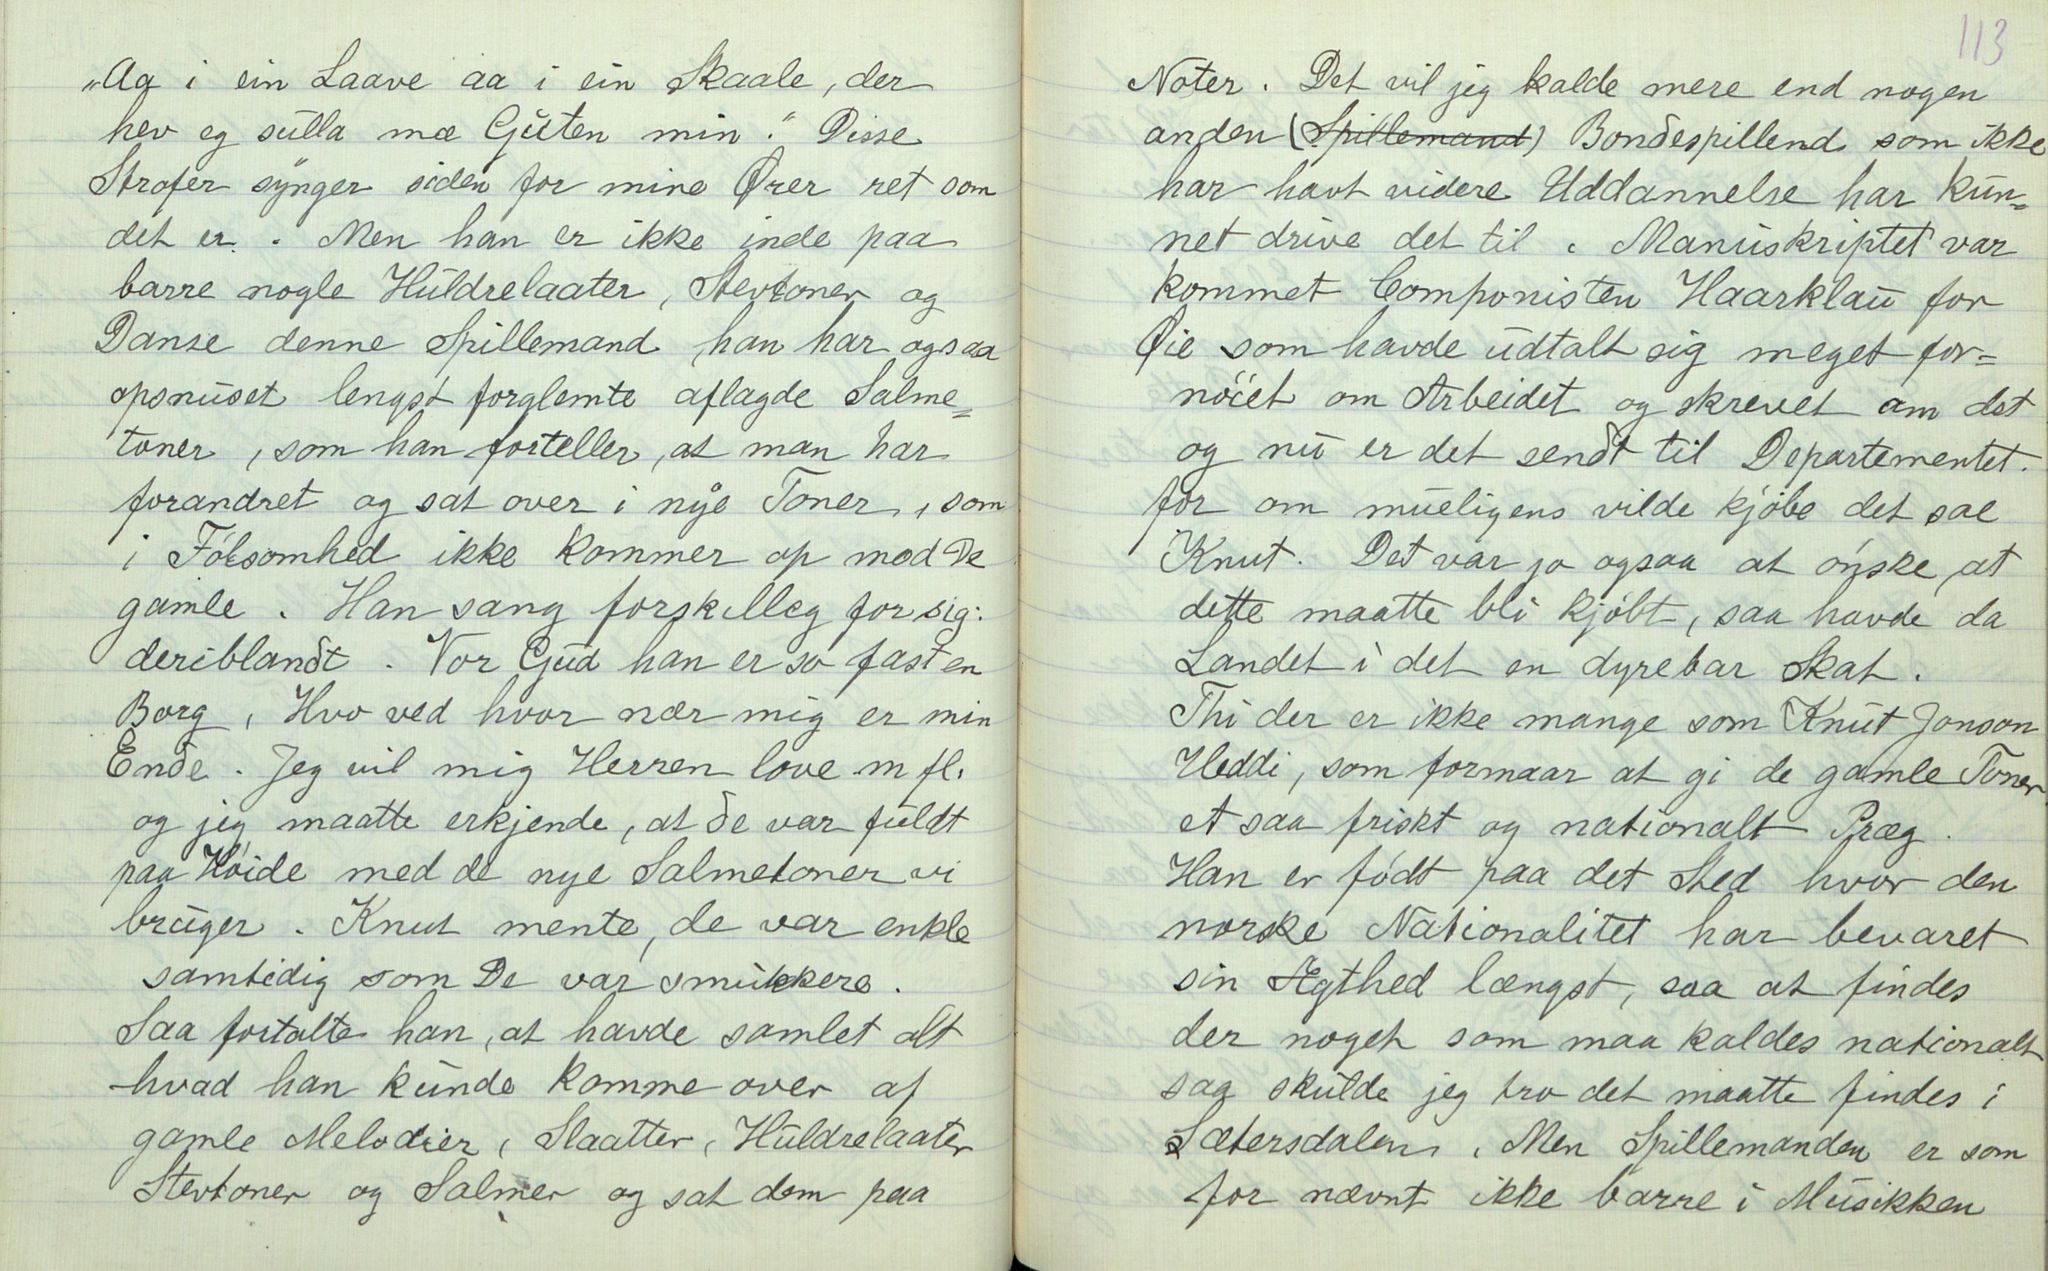 „Aa i ein Laave aa i ein Skaale, der
hev eg sulla mæ Guten min." Disse
Strofer synger siden for mine Ører ret som
det er. Men han er ikke inde paa
barre nogle Huldrelaater, Stevtoner og
Danse denne Spillemand, han har ogsaa
opsnuset lengst forglemte aflagde Salme=
toner, som han forteller, at man har
forandret og sat over i nye Toner, som
i Følsomhed ikke kommer op mod De
gamle. Han sang forskelleg for sig:
deriblandt. Vor Gud han er so fast en
Borg, Hvo ved hvor nær mig er min
Ende. Jeg vil mig Herren love m fl.
og jeg maatte erkjende, at de var fuldt
paa Høide med de nye Salmetoner vi
bruger. Knut mente, de var enkle
samtidig som De var smukkere.
Saa fortalte han, at havde samlet alt
hvad han kunde komme over af
gamle Melodier, Slaatter, Huldrelaater
Stevtoner og Salmer og sat dem paa
113
Noter. Det vil jeg kalde mere end nogen
anden (Spillemand) Bondespillend som ikke
har havt videre Uddannelse har kun=
net drive det til. Manuskriptet var
kommet Componisten Haarklau for
Øie som havde udtalt sig meget for=
nöiet om Arbeidet og skrevet om det
og nu er det sendt til Departementet.
for om mueligens vilde kjøbe det sae
Knut. Det var jo ogsaa at ønske, at
dette maatte bli kjøbt, saa havde da
Landet i det en dyrebar Skat.
Thi der er ikke mange som Knut Jonson
Heddi, som formaar at gi de gamle Toner
et saa friskt og nationalt Præg.
Han er født paa det Sted hvor den
norske Nationalitet har bevaret
sin Ægthed længst, saa at findes
der noget som maa kaldes nationalt
saa skulde jeg tro det maatte findes i
Sætersdalen. Men Spillemanden er som
for nævnt ikke barre i Musikken